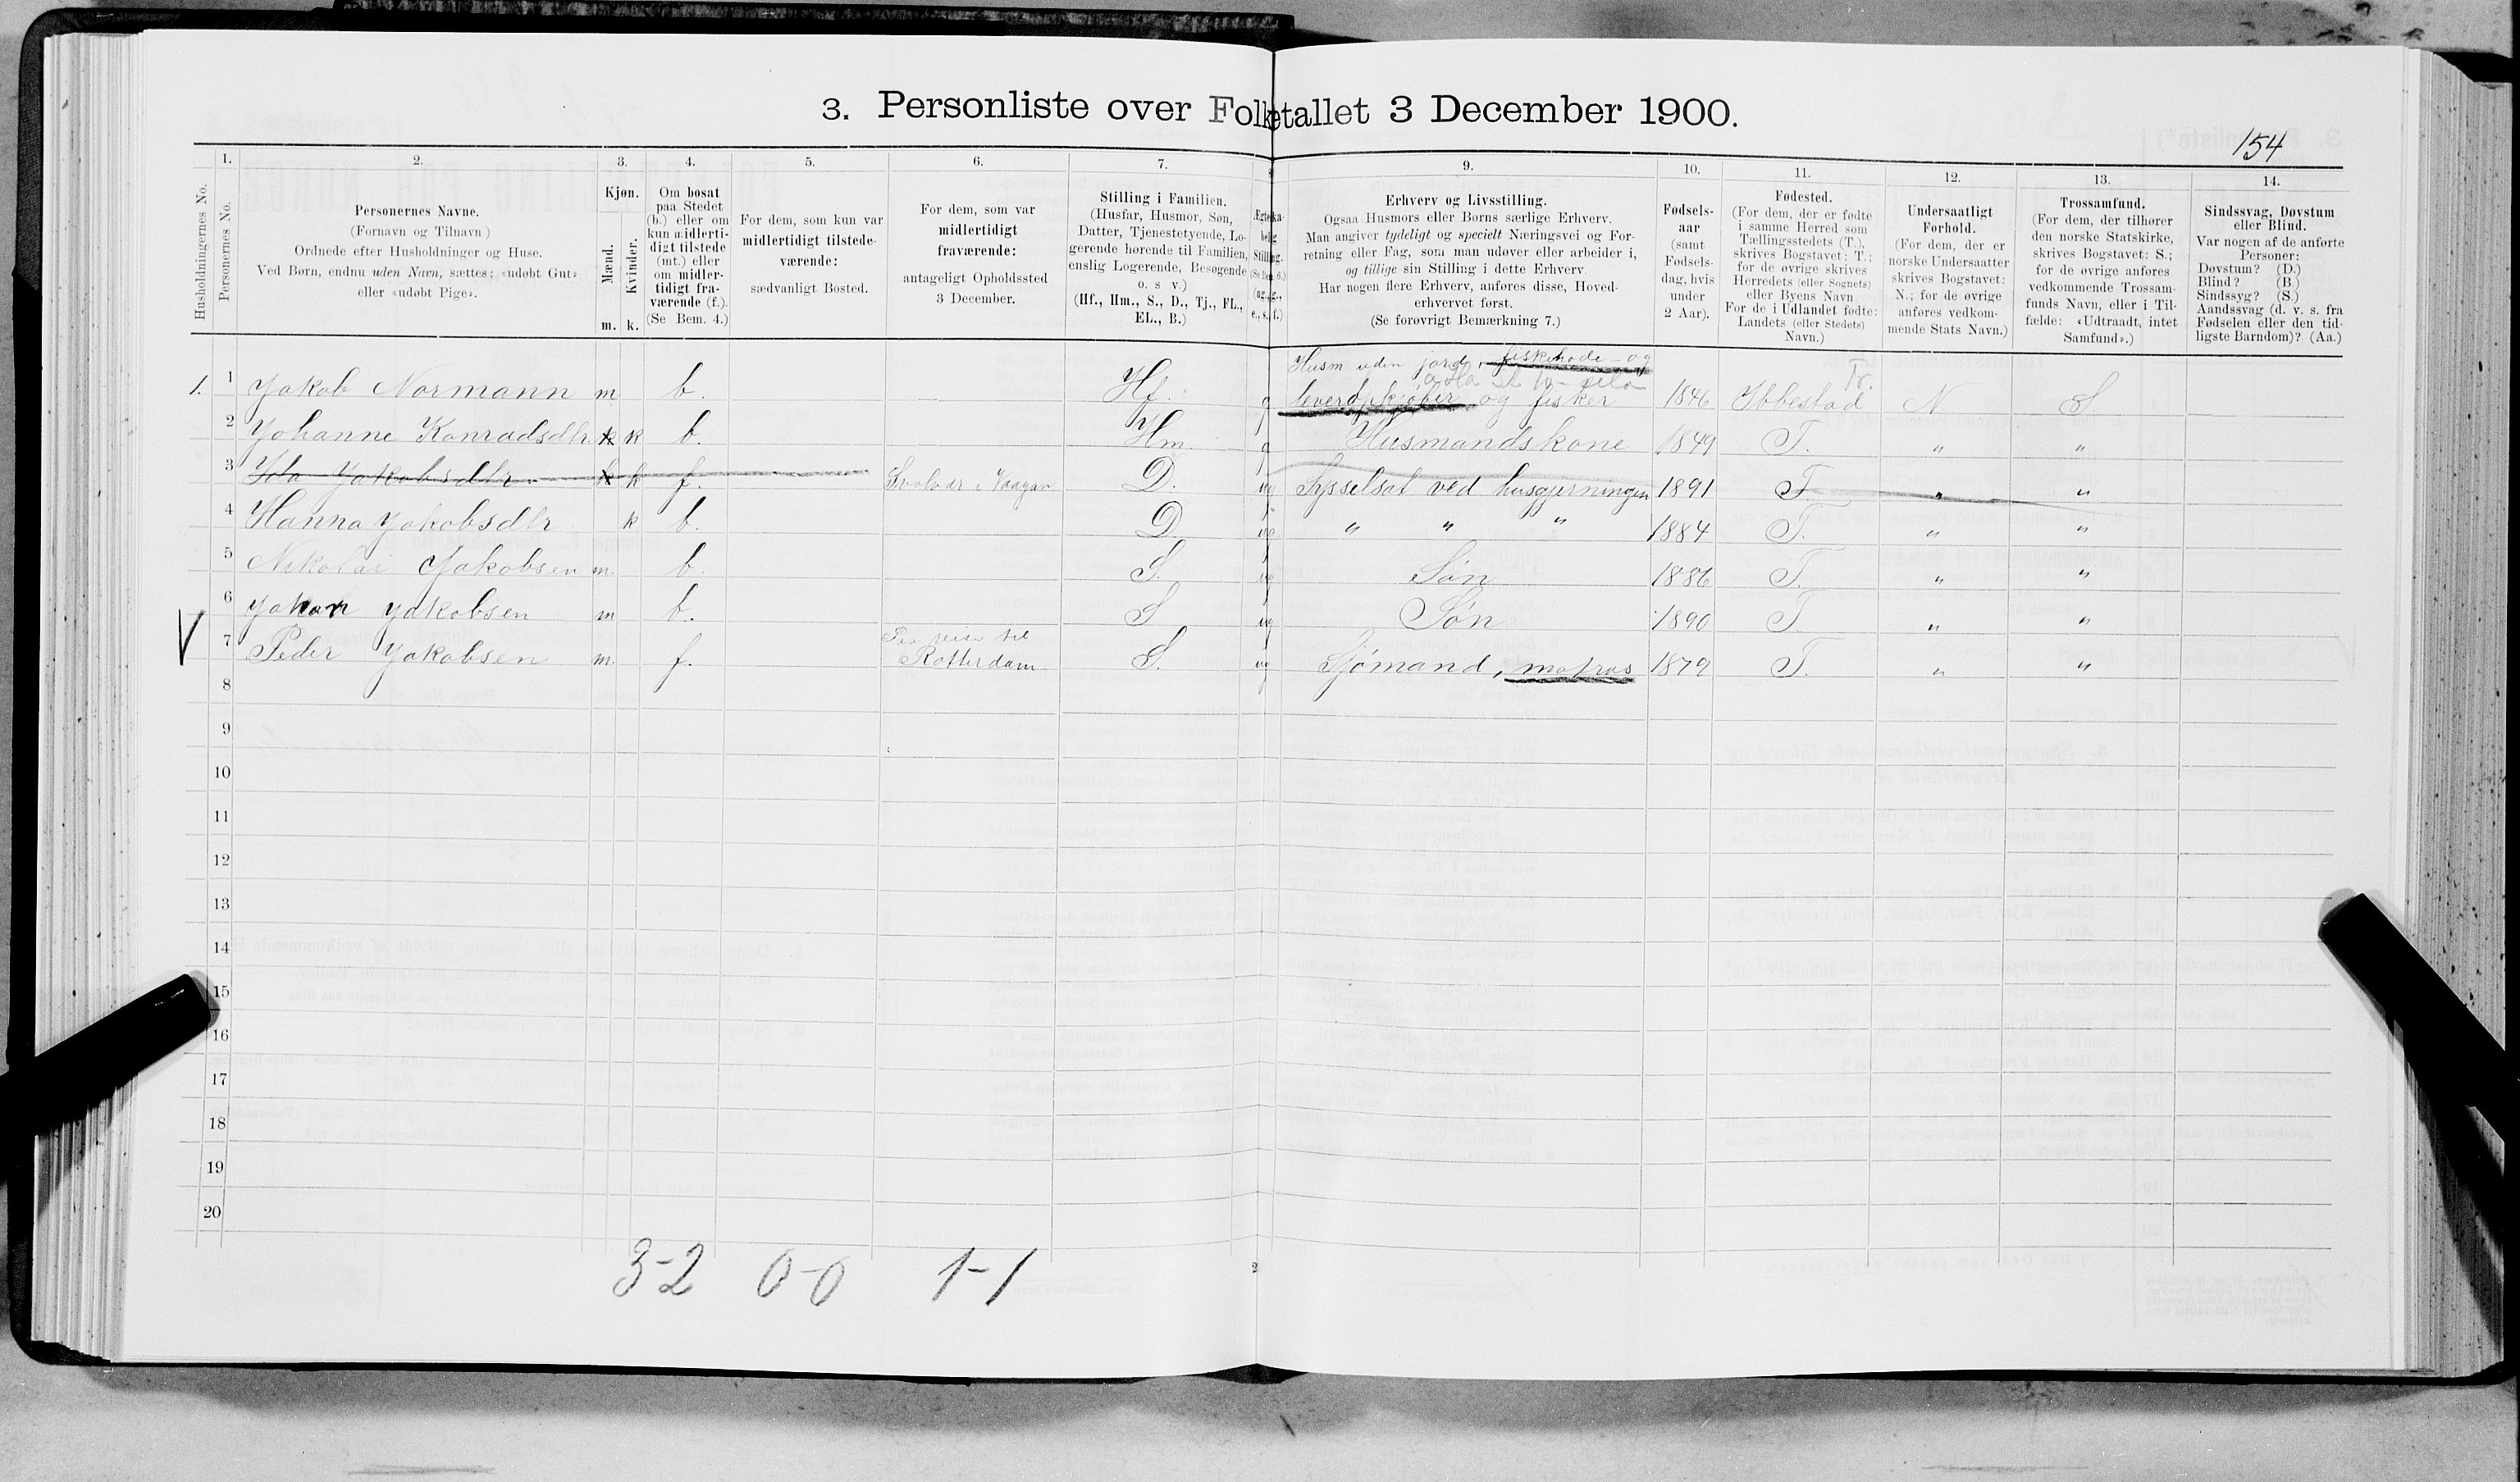 3. Personliste over Folketallet 3 December 1900.
154
1. 2. 3. 4. 5. 6. 7. 8 9. 10. 11. 12. 13. 14.
Husholdningernes No.
Personernes No.
Personernes Navne.
(Fornavn og Tilnavn)
Ordnede efter Husholdninger og Huse.
Ved Børn, endnu uden Navn, sættes: «udøbt Gut»
eller «udøbt Pige».
Kjøn.
Mænd.
Kvinder.
m. k.
Om bosat
paa Stedet
(b.) eller om
kun midlerti-
digt tilstede
(mt.) eller
om midler-
tidigt fra-
værende (f.).
(Se Bem. 4.)
For dem, som kun var
midlertidigt tilstede-
værende:
sædvanligt Bosted.
For dem, som var
midlertidigt
fraværende:
antageligt Opholdssted
3 December.
Stilling i Familien.
(Husfar, Husmor, Søn,
Datter, Tjenestetyende, Lo-
gerende hørende til Familien,
enslig Logerende, Besøgende
o. s v.)
(Hf., Hm., S., D., Tj., FL.,
EL., B.)
Ægteska-
belig
Stilling.
(Se Bem. 6.)
(ug., g.,
e., s., f.)
Erhverv og Livsstilling.
Ogsaa Husmors eller Børns særlige Erhverv.
Man angiver tydeligt og specielt Næringsvei og For-
retning eller Fag, som man udøver eller arbeider i,
og tillige sin Stilling i dette Erhverv.
Har nogen flere Erhverv, anføres disse, Hoved-
erhvervet først.
(Se forøvrigt Bemærkning 7.)
Fødsels-
aar
(samt
Fødsels-
dag, hvis
under
2 Aar).
Fødested.
(For dem, der er fødte
i samme Herred som
Tællingsstedets (T.),
skrives Bogstavet: T.;
for de øvrige skrives
Herredets (eller Sognets)
eller Byens Navn
For de i Udlandet fødte:
Landets (eller Stedets)
Navn.)
Undersaatligt
Forhold.
(For dem, der er
norske Undersaatter
skrives Bogstavet:
N.; for de øvrige
anføres vedkom-
mende Stats Navn.)
Trossamfund.
(For dem, der tilhører
den norske Statskirke,
skrives Bogstavet: S.;
for de øvrige anføres
vedkommende Trossam-
funds Navn, eller i Til-
fælde: «Udtraadt, intet
Samfund».)
Sindssvag, Døvstum
eller Blind.
Var nogen af de anførte
Personer:
Døvstum? (D.)
Blind? (B.)
Sindssyg? (S.)
Aandssvag (d. v. s. fra
Fødselen eller den tid-
ligste Barndom)? (Aa.)
Husm uden jord, fiskehode- og
Tr.
1. 1 Jakob Normann m b. Hf. g leveropkjøber og fisker 1846 Ibbestad N S
2 Johanne Konradsdtr. k k b. Hm g Husmandskone 1849 T. " "
3 Ida Jakobsdtr. k k f. Svolvær i Vaagan D. ug Sysselsat ved husgjerningen 1891 T. " "
4 Hanna Jakobsdtr k b. D ug " " " 1884 T. " "
5 Nikolai Jakobsen m. b. S. ug Søn 1886 T. " "
6 Johan Jakobsen m b. S ug Søn 1890 T " "
Paa reise til
V 7 Peder Jakobsen m. f. Rotterdam S. ug Sjømand, matros 1879 T. " "
8
9
10
11
12
13
14
15
16
17
18
19
20
3-2 0-0 1-1
2